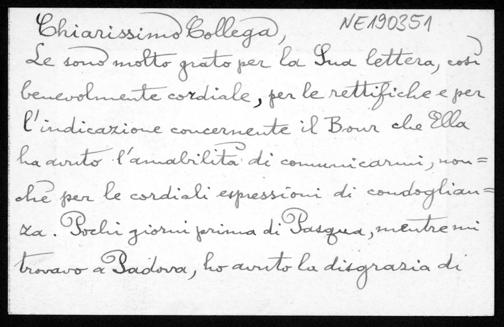 NE190351
Chiarissimo Collega,
Le sono molto grato per la Sua lettera, così
benevolmente cordiale, per le rettifiche e per
l'indicazione concernente il Bour che Ella
ha avuto l'amabilità di comunicarmi, non=
chè per le cordiali espressioni di condoglian=
za. Pochi giorni prima di Pasqua, mentre mi
trovavo a Padova, ho avuto la disgrazia di